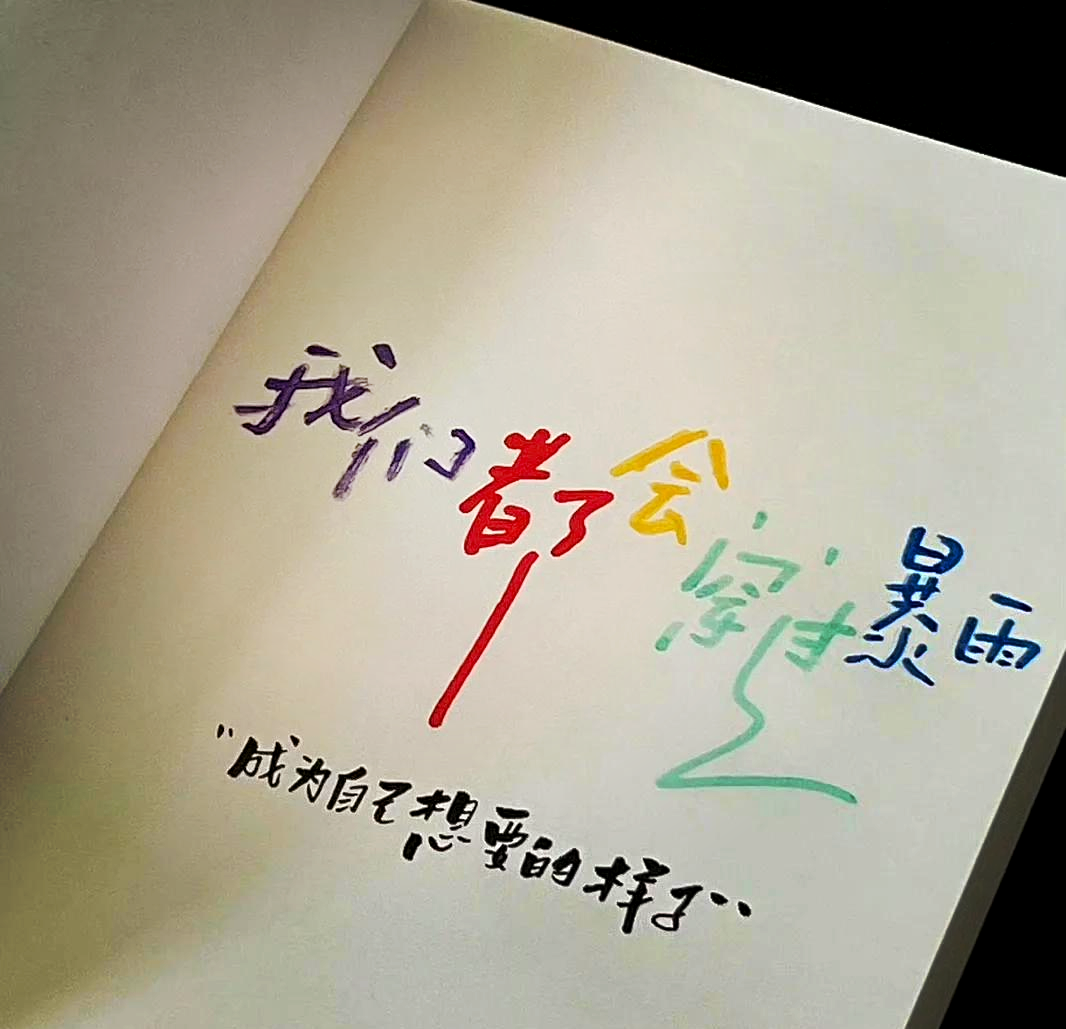 我们都会穿过暴雨
"成为自己想要的样子"